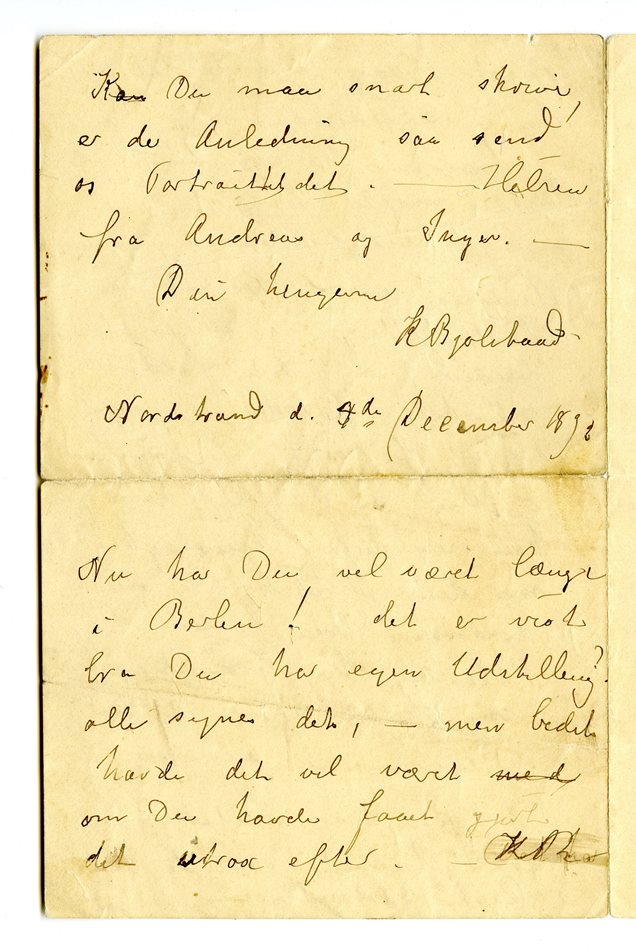 ~~Kan~~ Du maa snart skrive,
er de Anledning saa send
os Portraittet det. — Hilsen
fra Andreas og Inger. —
Din hengivne
K Bjølstaad
Nordstrand d. 4de December 1892
Nu har Du vel været længe
i Berlin! det er vist
bra Du har egen Udstilling?
alle synes det, — men bedst
havde det vel været ~~med~~
om Du havde faaet gjort
det strax efter. —